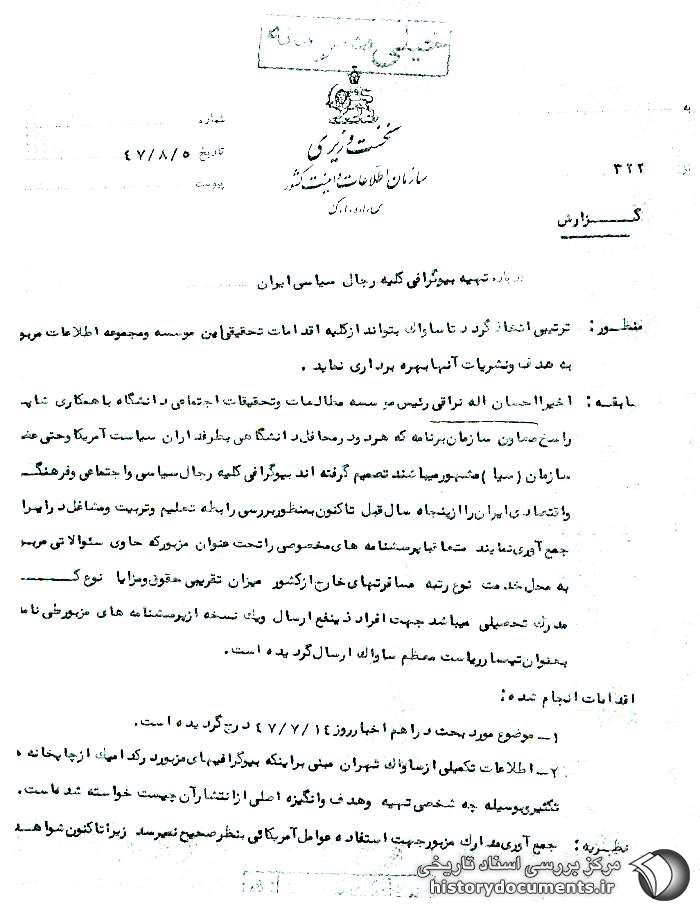 نخست وزیری
سازمان اطلاعات و امنیت کشور
س.ا.و.ا.ک
شماره
به
تاریخ ۴۷/۸/۵
۳۲۲
پیوست
گـــزارش
درباره تهیه بیوگرافی کلیه رجال سیاسی ایران
منظـور: ترتیبی اتخاذ گردد تا ساواك بتواند از کلیه اقدامات تحقیقی این موسسه ومجموعه اطلاعات مربو
به هدف ونشریات آنها بهره برداری نماید .
سابقـه: اخیرا احسان اله نراقی رئیس موسسه مطالعات وتحقیقات اجتماعی دانشگاه با همکاری شاپـ
راسخ معاون سازمان برنامه که هردو در محافل دانشگاهی بطرفداران سیاست آمریکا وحتی عضـ
سازمان (سیا) مشهور میباشند تصمیم گرفته اند بیوگرافی کلیه رجال سیاسی واجتماعی وفرهنگـ
واقتصادی ایران را از پنجاه سال قبل تاکنون بمنظور بررسی رابطه تعلیم وتربیت ومشاغل در ایرا
جمع آوری نمایند متعاقبا پرسشنامه های مخصوصی را تحت عنوان مزبور که حاوی سئوالاتی مربـو
به محل خدمت نوع رتبه مسافرتهای خارج از کشور میزان تقریبی حقوق ومزایا نوع کـــ
مدرك تحصیلی میباشد جهت افراد ذینفع ارسال ویك نسخه از پرسشنامه های مزبور طی نامه
بعنوان تیمسار ریاست معظم ساواك ارسال گردیده است.
اقدامات انجام شده:
۱- موضوع مورد بحث در اهم اخبار روز ۴۷/۷/۱۴ درج گردیده است.
۲- اطلاعات تکمیلی از ساواك تهران مبنی بر اینکه بیوگرافیهای مزبور در کدامیك از چاپخانه ه
تکثیر وبوسیله چه شخصی تهیه وهدف وانگیزه اصلی از انتشار آن چیست خواسته شده است.
نظـریه: جمع آوری مدارك مزبور جهت استفاده عوامل آمریکائی بنظر صحیح نمیرسد زیرا تاکنون شواهـد
مرکز بررسی اسناد تاریخی
historydocuments.ir